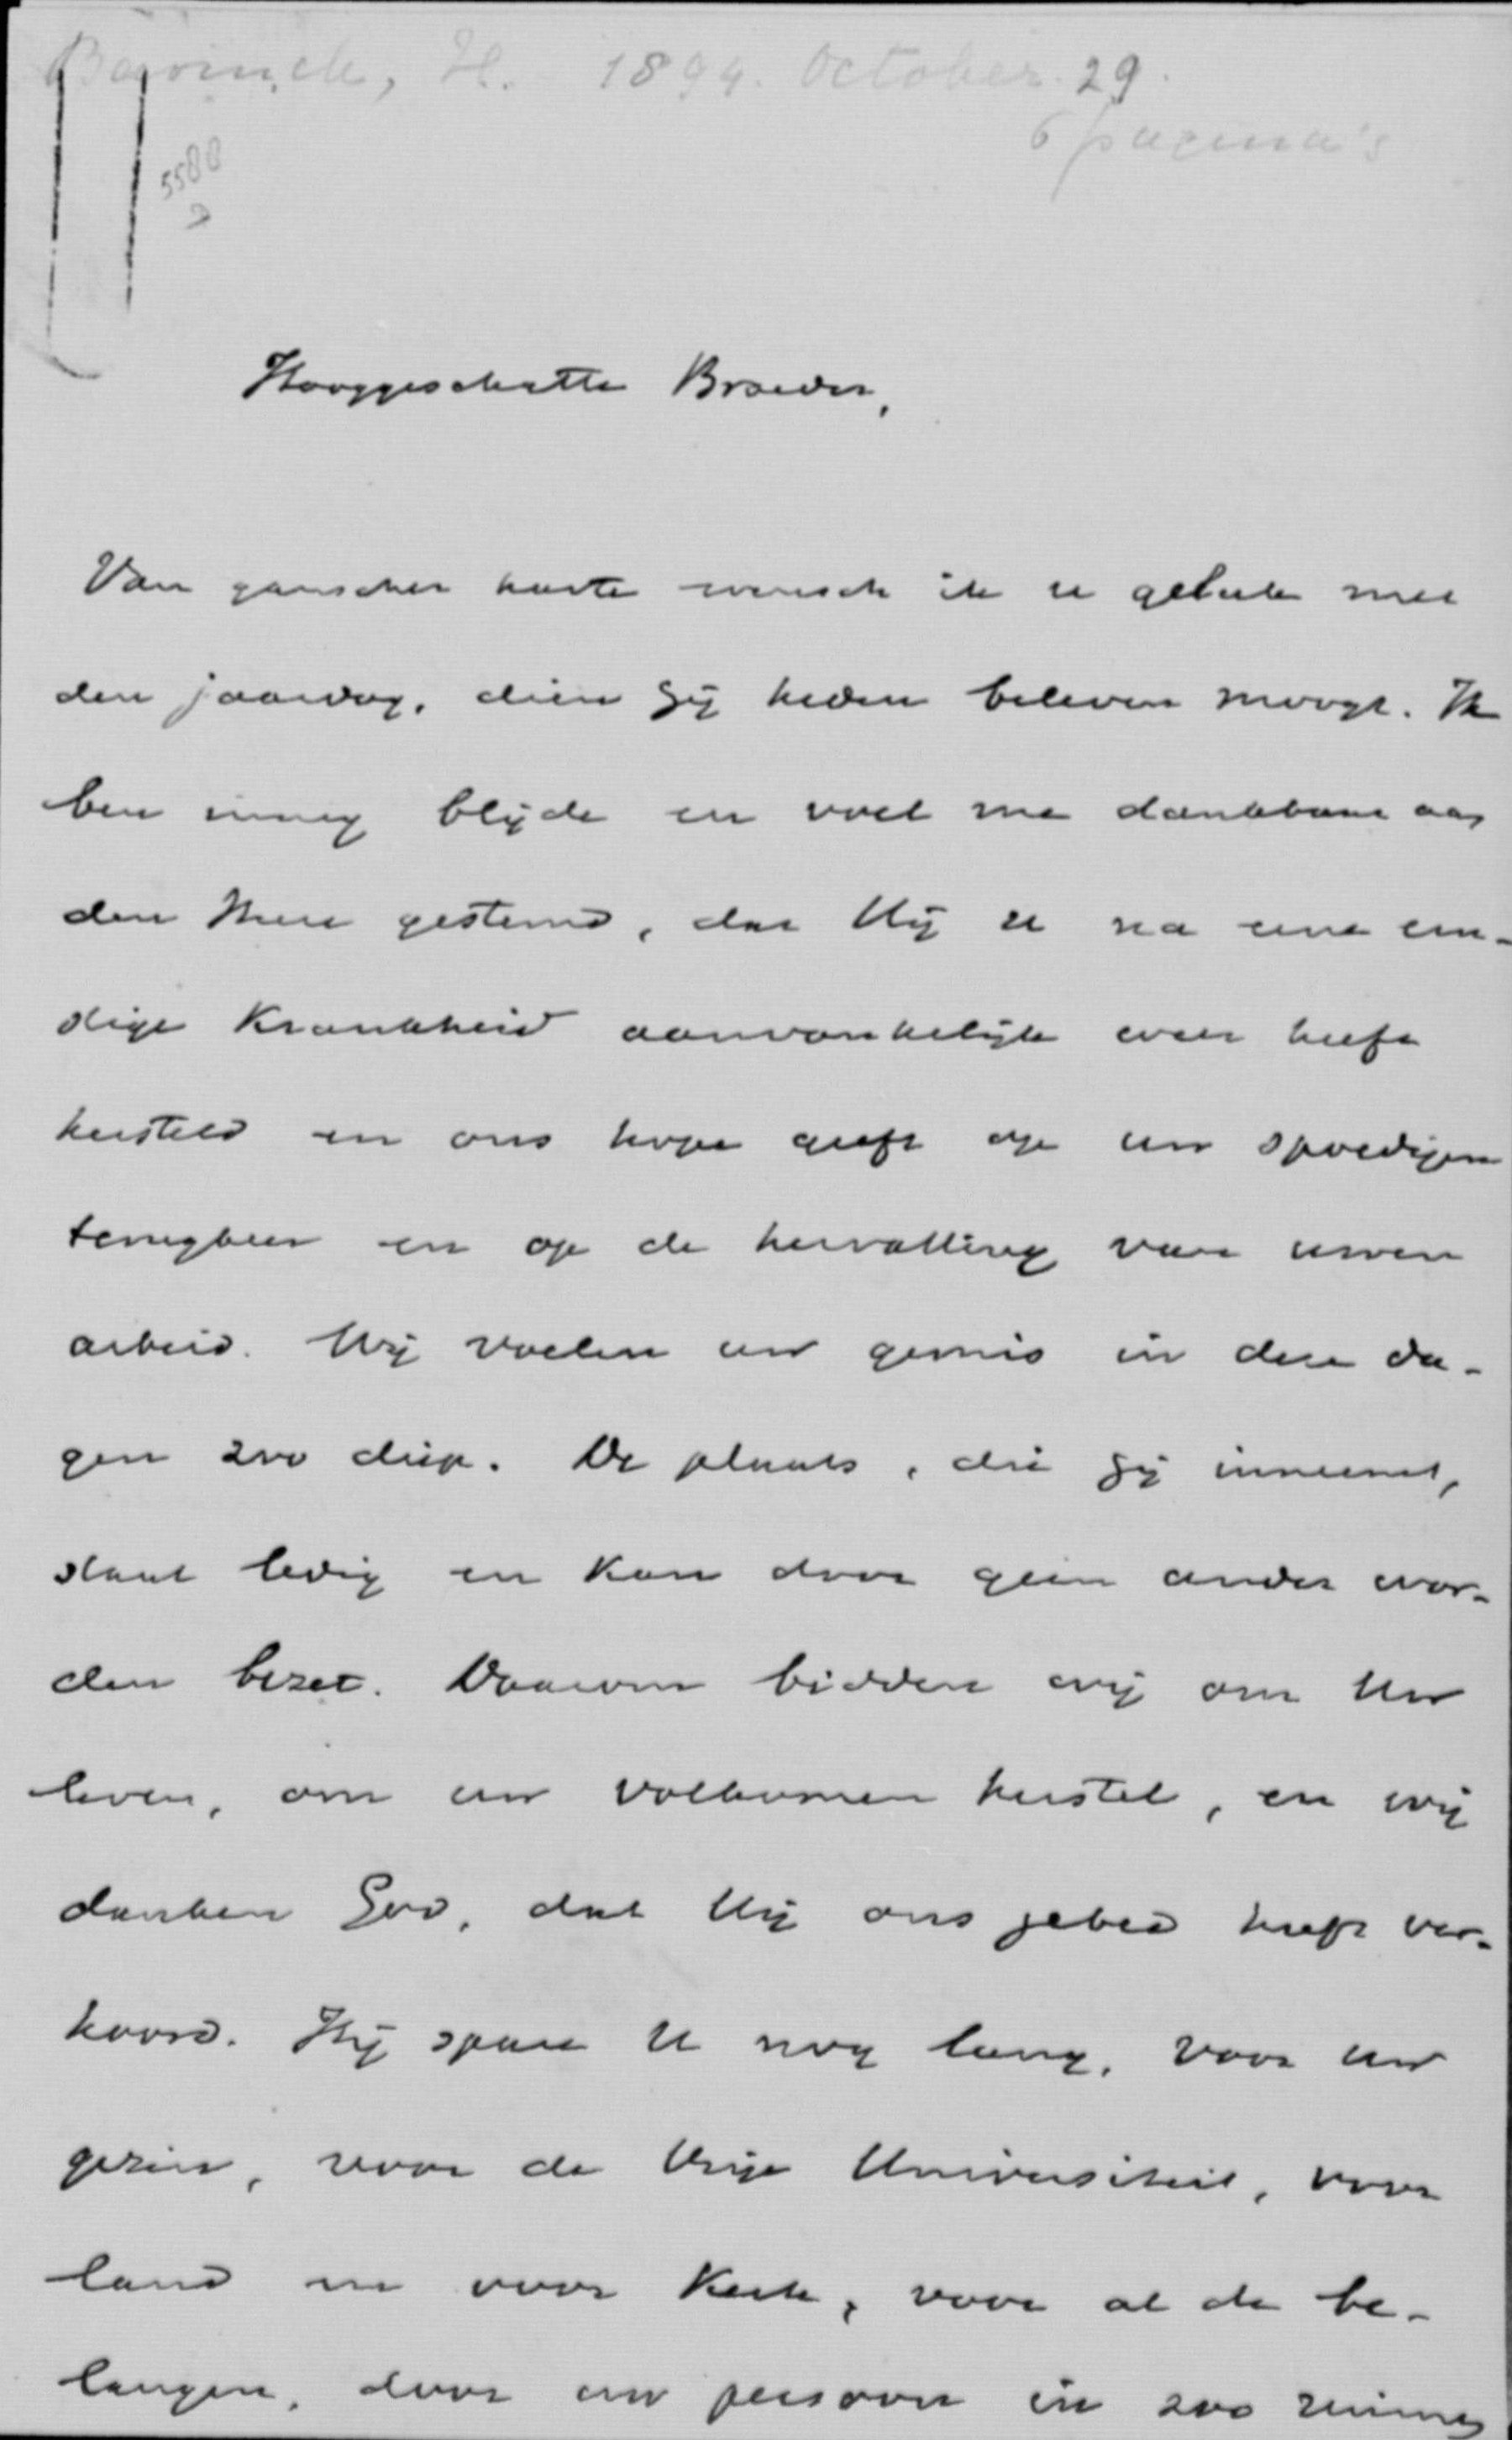 Bavinck, H. 1894. October 29.
6 pagina's
5588
Hooggeschatte Broeder,
Van ganscher harte wensch ik u geluk met
den jaardag, dien gij heden beleven moogt. Ik
ben innig blijde en voel me dankbaar aan
den Heere gestemd, dat Hij u na eene ern-
stige krankheid aanvankelijk weer heeft
hersteld en ons hope geeft op uw spoedigen
terugkeer en op de hervatting van uwen
arbeid. Wij voelen uw gemis in deze da-
gen zoo diep. De plaats, die gij inneemt,
staat ledig en kan door geen ander wor-
den bezet. Daarom bidden wij om Uw
leven, om uw volkomen herstel, en wij
danken God, dat Hij ons gebed heeft ver-
hoord. Hij spare U nog lang, voor uw
gezin, voor de Vrije Universiteit, voor
land en voor kerk, voor al de be-
langen, door uw persoon in zoo ruimen